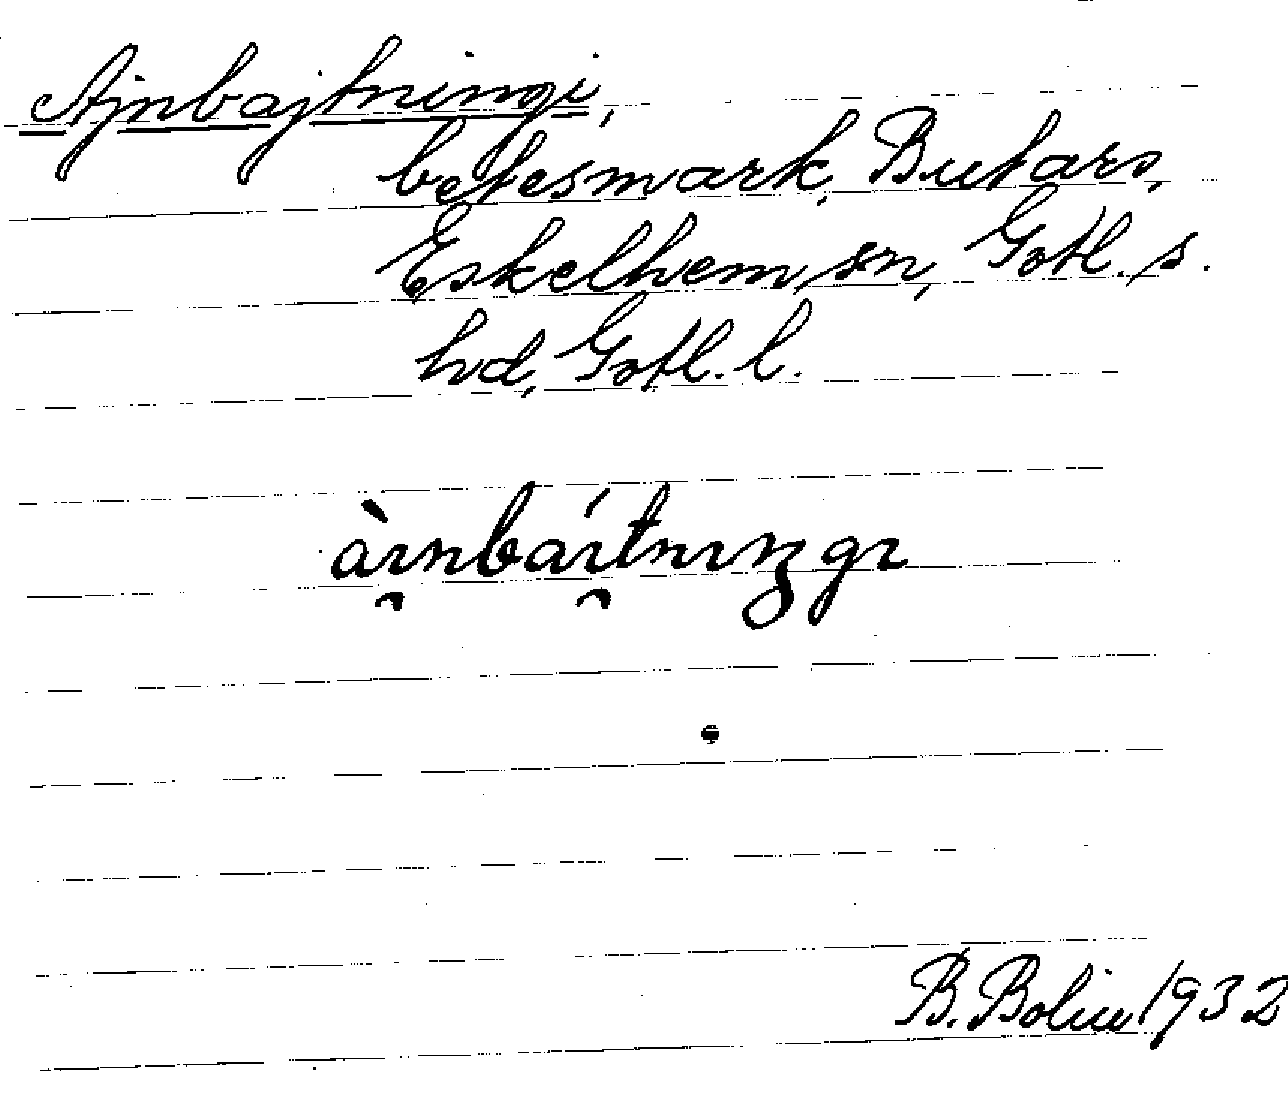 Ajnbajtningi,
betesmark, Butars,
Eskelhem sn, Gotl. s.
hd, Gotl. l.
àı̯nbáı̯tnıŋgı
B. Bolin 1932